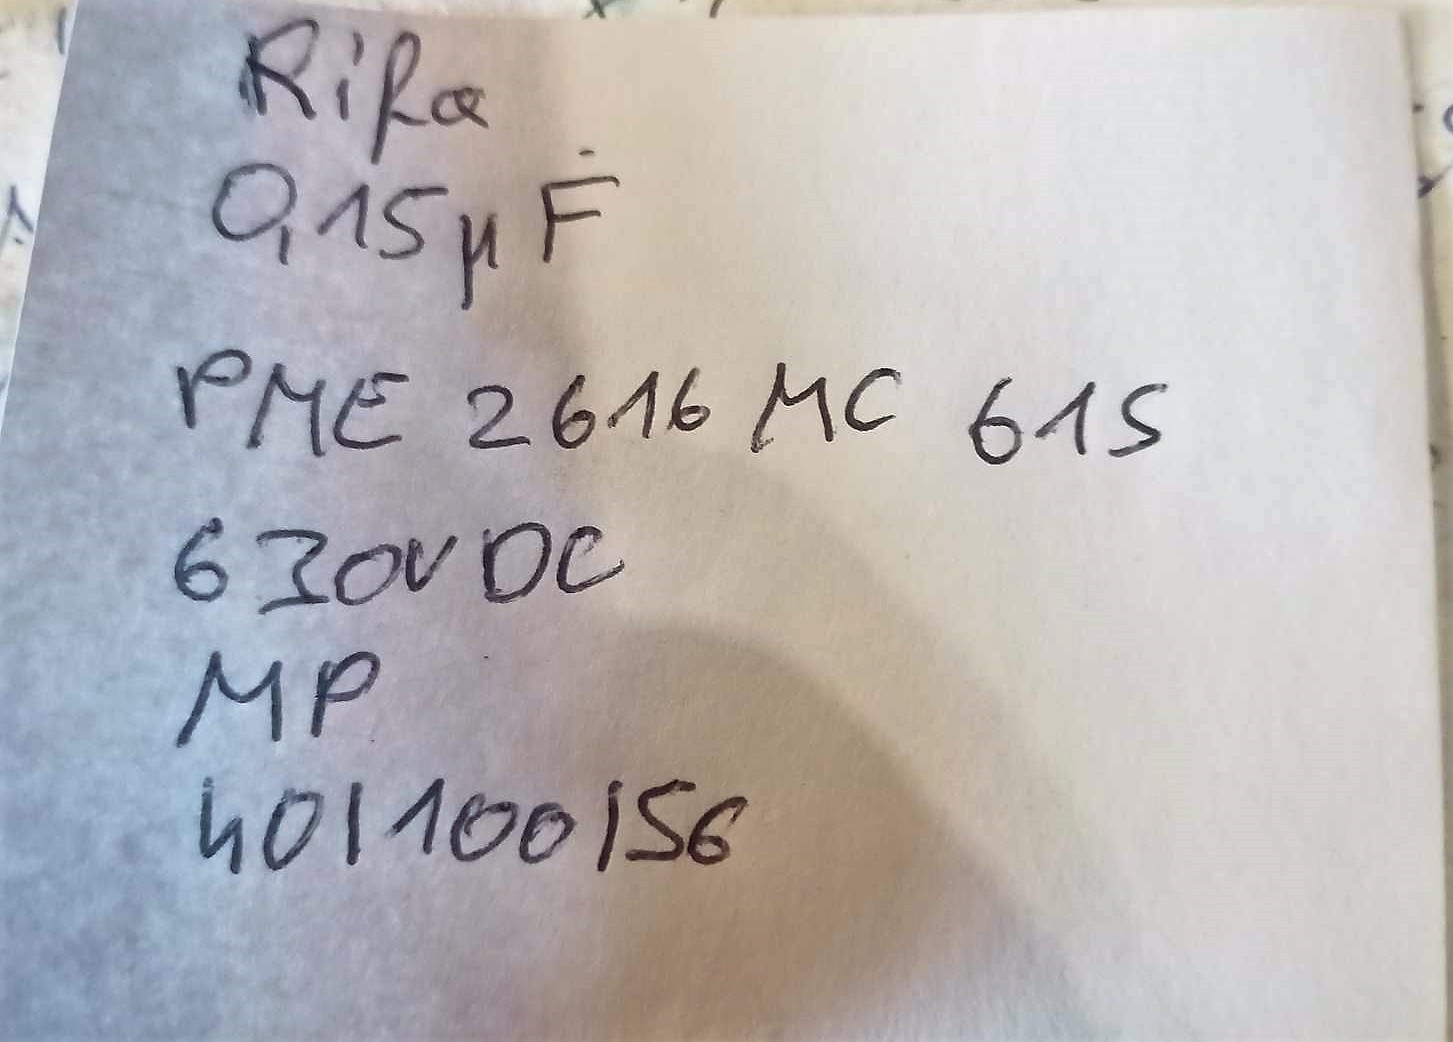 Rifa
0,15µF
PME 2616 MC 615
630V DC
MP
40/100/56